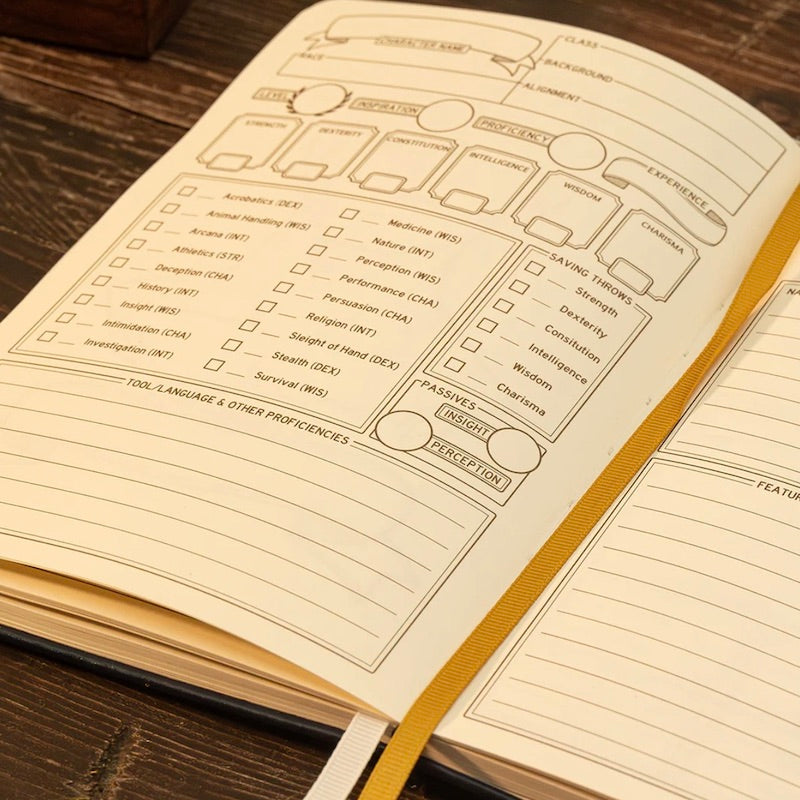 CHARACTER NAME
CLASS
RACE
BACKGROUND
ALIGNMENT
LEVEL
INSPIRATION
PROFICIENCY
EXPERIENCE
STRENGTH
DEXTERITY
CONSTITUTION
INTELLIGENCE
WISDOM
CHARISMA
Acrobatics (DEX)
Animal Handling (WIS)
Arcana (INT)
Athletics (STR)
Deception (CHA)
History (INT)
Insight (WIS)
Intimidation (CHA)
Investigation (INT)
Medicine (WIS)
Nature (INT)
Perception (WIS)
Performance (CHA)
Persuasion (CHA)
Religion (INT)
Sleight of Hand (DEX)
Stealth (DEX)
Survival (WIS)
SAVING THROWS
Strength
Dexterity
Consitution
Intelligence
Wisdom
Charisma
PASSIVES
INSIGHT
PERCEPTION
TOOL/LANGUAGE & OTHER PROFICIENCIES